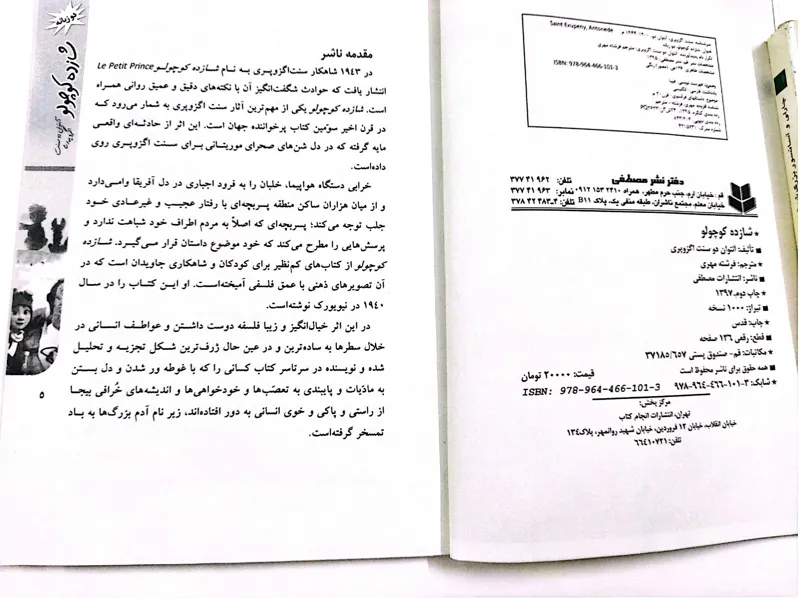 Saint Exupery, Antoinede
سرشناسه: سنت اگزوپری، آنتوان دو، ۱۹۰۰-۱۹۴۴ م
ISBN: 978-964-466-101-3
وضعیت فهرست نویسی: فیپا
دفتر نشر مصطفی
تلفن: ۹۶۲ ۴۱ ۳۷۷
قم - خیابان ارم، جنب حرم مطهر، همراه ۲۴۱۰ ۱۵۳ ۰۹۱۲ نمابر: ۹۶۳ ۴۱ ۳۷۷
خیابان معلم، مجتمع ناشران، طبقه منفی یک، پلاک B11 تلفن: ۴-۳۸۳ ۴۲ ۳۷۸
★ شازده کوچولو
■ تألیف: آنتوان دو سنت اگزوپری
★ مترجم: فرشته مهری
■ ناشر: انتشارات مصطفی
★ چاپ دوم، ۱۳۹۷
■ تیراژ: ۱۰۰۰ نسخه
★ چاپ: قدس
■ قطع: رقعی ۱۳۶ صفحه
★ مکاتبات: قم- صندوق پستی ۳۷۱۸۵/۶۵۷
■ همه حقوق برای ناشر محفوظ است
★ شابک: ۳-۱۰۱-۴۶۶-۹۶۴-۹۷۸
قیمت: ۲۰۰۰۰ تومان
ISBN: 978-964-466-101-3
مرکز پخش:
تهران، انتشارات انجام کتاب
خیابان انقلاب، خیابان ۱۲ فروردین، خیابان شهید روانمهر، پلاک۱۳۴
تلفن: ۶۶۴۱۰۷۲۱
مقدمه ناشر
در ۱۹۴۳ شاهکار سنت‌اگزوپری به نام شازده کوچولو Le Petit Prince
انتشار یافت که حوادث شگفت‌انگیز آن با نکته‌های دقیق و عمیق روانی همراه
است. شازده کوچولو یکی از مهم‌ترین آثار سنت اگزوپری به شمار می‌رود که
در قرن اخیر سوّمین کتاب پرخواننده جهان است. این اثر از حادثه‌ای واقعی
مایه گرفته که در دل شن‌های صحرای موریتانی برای سنت اگزوپری روی
داده‌است.
خرابی دستگاه هواپیما، خلبان را به فرود اجباری در دل آفریقا وامی‌دارد
و از میان هزاران ساکن منطقه پسربچه‌ای با رفتار عجیب و غیرعادی خود
جلب توجه می‌کند؛ پسربچه‌ای که اصلاً به مردم اطراف خود شباهت ندارد و
پرسش‌هایی را مطرح می‌کند که خود موضوع داستان قرار می‌گیرد. شازده
کوچولو از کتاب‌های کم‌نظیر برای کودکان و شاهکاری جاویدان است که در
آن تصویرهای ذهنی با عمق فلسفی آمیخته‌است. او این کتاب را در سال
۱۹۴۰ در نیویورک نوشته‌است.
در این اثر خیال‌انگیز و زیبا فلسفه دوست داشتن و عواطف انسانی در
خلال سطرها به ساده‌ترین و در عین حال ژرف‌ترین شکل تجزیه و تحلیل
شده و نویسنده در سرتاسر کتاب کسانی را که با غوطه ور شدن و دل بستن
به مادّیات و پایبندی به تعصّب‌ها و خودخواهی‌ها و اندیشه‌های خُرافی بیجا
از راستی و پاکی و خوی انسانی به دور افتاده‌اند، زیر نام آدم بزرگ‌ها به باد
تمسخر گرفته‌است.
۵
دو زبانه
شازده کوچولو